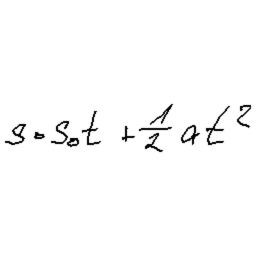 s • s₀t + 1/2 at²